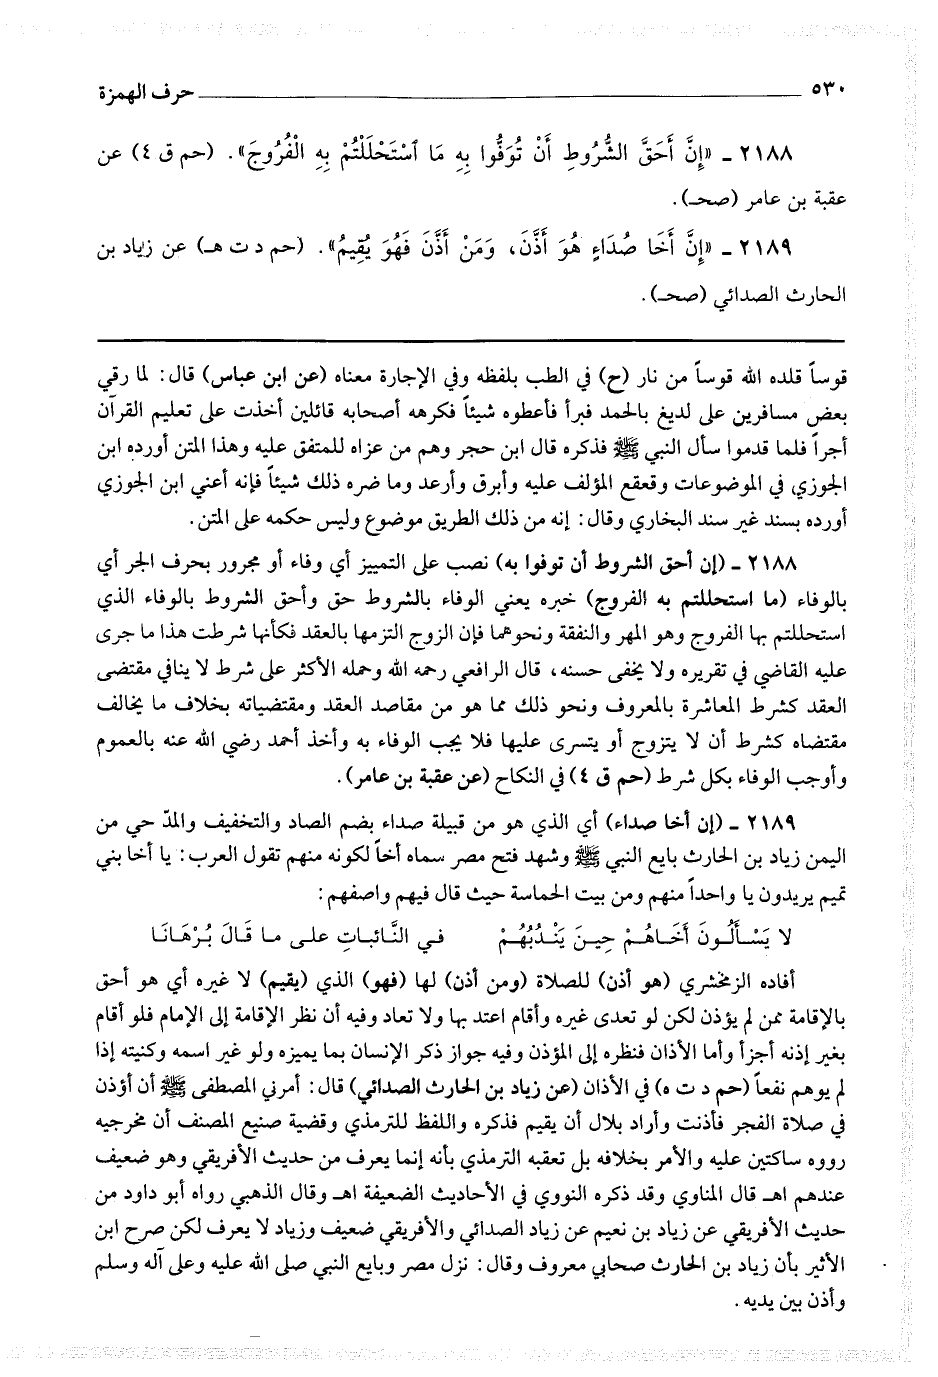 ٥٣٠ حرف الهمزة
٢١٨٨ ـ «إِنَّ أَحَقَّ الشُّرُوطِ أَنْ تُوَفُّوا بِهِ مَا ٱسْتَحْلَلْتُمْ بِهِ الْفُرُوجَ». (حم ق ٤) عن
عقبة بن عامر (صحـ).
٢١٨٩ ـ «إِنَّ أَخَا صُدَاءٍ هُوَ أَذَّنَ، وَمَنْ أَذَّنَ فَهُوَ يُقِيمُ». (حم د ت هـ) عن زياد بن
الحارث الصدائي (صحـ).
قوساً قلده الله قوساً من نار (ح) في الطب بلفظه وفي الإجارة معناه (عن ابن عباس) قال: لما رقي
بعض مسافرين على لديغ بالحمد فبرأ فأعطوه شيئاً فكرهه أصحابه قائلين أخذت على تعليم القرآن
أجراً فلما قدموا سأل النبي ﷺ فذكره قال ابن حجر وهم من عزاه للمتفق عليه وهذا المتن أورده ابن
الجوزي في الموضوعات وقعقع المؤلف عليه وأبرق وأرعد وما ضره ذلك شيئاً فإنه أعني ابن الجوزي
أورده بسند غير سند البخاري وقال: إنه من ذلك الطريق موضوع وليس حكمه على المتن.
٢١٨٨ ـ (إن أحق الشروط أن توفوا به) نصب على التمييز أي وفاء أو مجرور بحرف الجر أي
بالوفاء (ما استحللتم به الفروج) خبره يعني الوفاء بالشروط حق وأحق الشروط بالوفاء الذي
استحللتم بها الفروج وهو المهر والنفقة ونحوهما فإن الزوج التزمها بالعقد فكأنها شرطت هذا ما جرى
عليه القاضي في تقريره ولا يخفى حسنه، قال الرافعي رحمه الله وحمله الأكثر على شرط لا ينافي مقتضى
العقد كشرط المعاشرة بالمعروف ونحو ذلك مما هو من مقاصد العقد ومقتضياته بخلاف ما يخالف
مقتضاه كشرط أن لا يتزوج أو يتسرى عليها فلا يجب الوفاء به وأخذ أحمد رضي الله عنه بالعموم
وأوجب الوفاء بكل شرط (حم ق ٤) في النكاح (عن عقبة بن عامر).
٢١٨٩ ـ (إن أخا صداء) أي الذي هو من قبيلة صداء بضم الصاد والتخفيف والمدّ حي من
اليمن زياد بن الحارث بايع النبي ﷺ وشهد فتح مصر سماه أخاً لكونه منهم تقول العرب: يا أخا بني
تميم يريدون يا واحداً منهم ومن بيت الحماسة حيث قال فيهم واصفهم:
لا يَسْـأَلُـونَ أَخَـاهُـمْ حِيـنَ يَنْـدُبُهُـمْ فـي النَّـائبـاتِ علـى مـا قَـالَ بُـرْهَـانَـا
أفاده الزمخشري (هو أذن) للصلاة (ومن أذن) لها (فهو) الذي (يقيم) لا غيره أي هو أحق
بالإقامة ممن لم يؤذن لكن لو تعدى غيره وأقام اعتد بها ولا تعاد وفيه أن نظر الإقامة إلى الإمام فلو أقام
بغير إذنه أجزأ وأما الأذان فنظره إلى المؤذن وفيه جواز ذكر الإنسان بما يميزه ولو غير اسمه وكنيته إذا
لم يوهم نفعاً (حم د ت ه) في الأذان (عن زياد بن الحارث الصدائي) قال: أمرني المصطفى ﷺ أن أؤذن
في صلاة الفجر فأذنت وأراد بلال أن يقيم فذكره واللفظ للترمذي وقضية صنيع المصنف أن مخرجيه
رووه ساكتين عليه والأمر بخلافه بل تعقبه الترمذي بأنه إنما يعرف من حديث الأفريقي وهو ضعيف
عندهم اهـ قال المناوي وقد ذكره النووي في الأحاديث الضعيفة اهـ وقال الذهبي رواه أبو داود من
حديث الأفريقي عن زياد بن نعيم عن زياد الصدائي والأفريقي ضعيف وزياد لا يعرف لكن صرح ابن
الأثير بأن زياد بن الحارث صحابي معروف وقال: نزل مصر وبايع النبي صلى الله عليه وعلى آله وسلم
وأذن بين يديه.